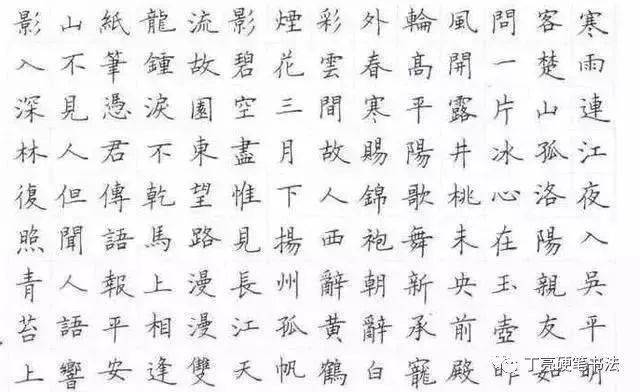 寒雨連江夜入吳平
客楚山孤洛陽親友如
問一片冰心在玉壺昨
風開露井桃未央前殿
輪髙平陽歌舞新承寵
外春寒賜錦袍朝辭白
彩雲間故人西辭黃鶴
煙花三月下揚州孤帆
影碧空盡惟見長江天
流故園東望路漫漫雙
龍鍾淚不乾馬上相逢
紙筆憑君傳語報平安
山不見人但聞人語響
影入深林復照青苔上
丁亮硬笔书法